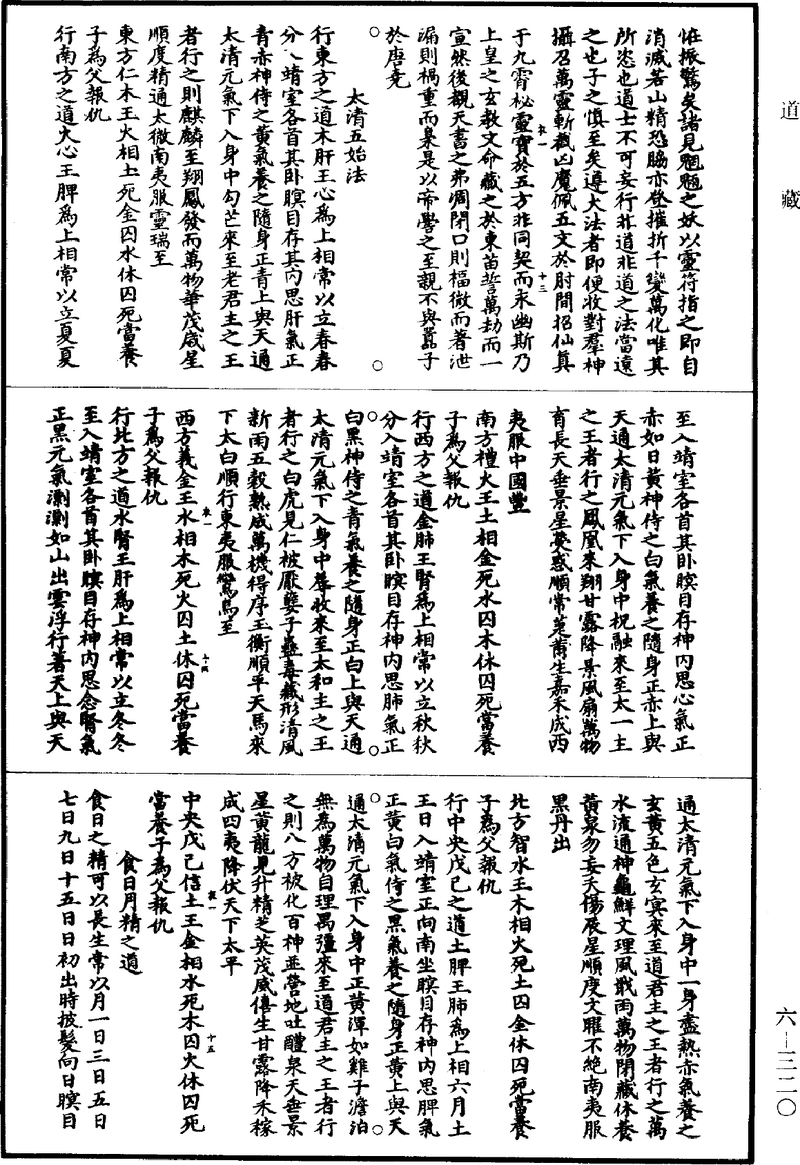 道藏
怪振驚矣諸見魍魎之妖以靈符指之即自
消滅若山精恐脇亦登摧折千變萬化唯其
所恣也道士不可妄行非道非道之法當遠
之也子之慎至矣遵大法者即便收對羣神
攝召萬靈斬馘凶魔佩五文於肘間招仙真
于九霄秘靈寶於五方非同契而永幽斯乃
上皇之玄教文命藏之於東苗誓萬劫而一
宣然後觀天書之弗凋閉口則福微而著泄
漏則禍重而臬是以帝嚳之至親不與嚚子
於唐堯
太清五始法
行東方之道木肝王心爲上相常以立春春
分入靖室各首其卧瞑目存其內思肝氣正
青赤神侍之黃氣養之隨身正青上與天通
太清元氣下入身中勾芒來至老君主之王
者行之則麒麟至翔鳳發而萬物華茂歲星
順度精通太微南夷服靈瑞至
東方仁木王火相土死金囚水休囚死當養
子爲父報仇
行南方之道火心王脾爲上相常以立夏夏
至入靖室各首其卧瞑目存神內思心氣正
赤如日黃神侍之白氣養之隨身正赤上與
天通太清元氣下入身中祝融來至太一主
之王者行之鳳凰來翔甘露降景風扇萬物
育長天垂景星熒惑順常蓂莆生嘉禾成西
夷服中國豐
南方禮火王土相金死水囚木休囚死當養
子爲父報仇
行西方之道金肺王腎爲上相常以立秋秋
分入靖室各首其卧瞑目存神內思肺氣正
白黑神侍之青氣養之隨身正白上與天通
太清元氣下入身中蓐收來至太和主之王
者行之白虎見仁被厭孽子蠱毒藏形清風
新雨五穀熟成萬機得序玉衡順平天馬來
下太白順行東夷服鸞鳥至
西方義金王水相木死火囚土休囚死當養
子爲父報仇
行北方之道水腎王肝爲上相常以立冬冬
至入靖室各首其卧瞑目存神內思念腎氣
正黑元氣濔濔如山出雲浮行著天上與天
通太清元氣下入身中一身盡熱赤氣養之
玄黃五色玄冥來至道君主之王者行之萬
水流通神龜鮮文理風戢雨萬物閉藏休養
黃泉勿妄夭傷辰星順度文曜不絕南夷服
黑丹出
北方智水王木相火死土囚金休囚死當養
子爲父報仇
行中央戊己之道土脾王肺爲上相六月土
王日入靖室正向南坐瞑目存神內思脾氣
正黃白氣侍之黑氣養之隨身正黃上與天
通太清元氣下入身中正黃渾如雞子澹泊
無爲萬物自理禺彊來至道君主之王者行
之則八方被化百神並營地吐醴泉天垂景
星黃龍見升精芝英茂威僖生甘露降禾稼
成四夷降伏天下太平
中央戊己信土王金相水死木囚火休囚死
當養子爲父報仇
食日月精之道
食日之精可以長生常以月一日三日五日
七日九日十五日日初出時披髮向日瞑目
六—三二〇